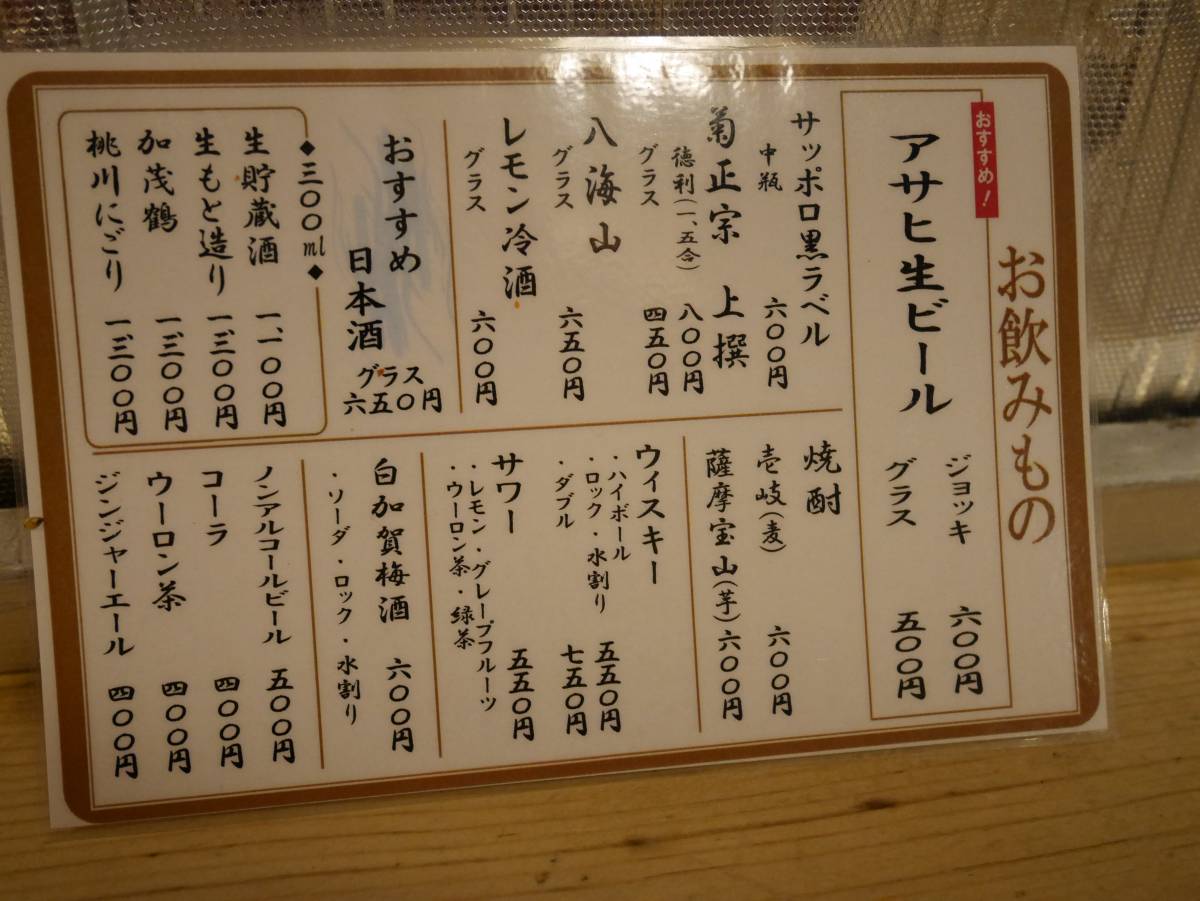 お飲みもの
おすすめ！
アサヒ生ビール
ジョッキ 六〇〇円
グラス 五〇〇円
サッポロ黒ラベル
中瓶 六〇〇円
菊正宗 上撰
徳利（一、五合） 八〇〇円
グラス 四五〇円
八海山
グラス 六五〇円
レモン冷酒
グラス 六〇〇円
おすすめ
日本酒
グラス
六五〇円
◆三〇〇ml◆
生貯蔵酒 一、一〇〇円
生もと造り 一、三〇〇円
加茂鶴 一、三〇〇円
桃川にごり 一、三〇〇円
焼酎
壱岐（麦） 六〇〇円
薩摩宝山（芋） 六〇〇円
ウィスキー
・ハイボール
・ロック・水割り 五五〇円
・ダブル 七五〇円
サワー 五五〇円
・レモン・グレープフルーツ
・ウーロン茶・緑茶
白加賀梅酒 六〇〇円
・ソーダ・ロック・水割り
ノンアルコールビール 五〇〇円
コーラ 四〇〇円
ウーロン茶 四〇〇円
ジンジャーエール 四〇〇円